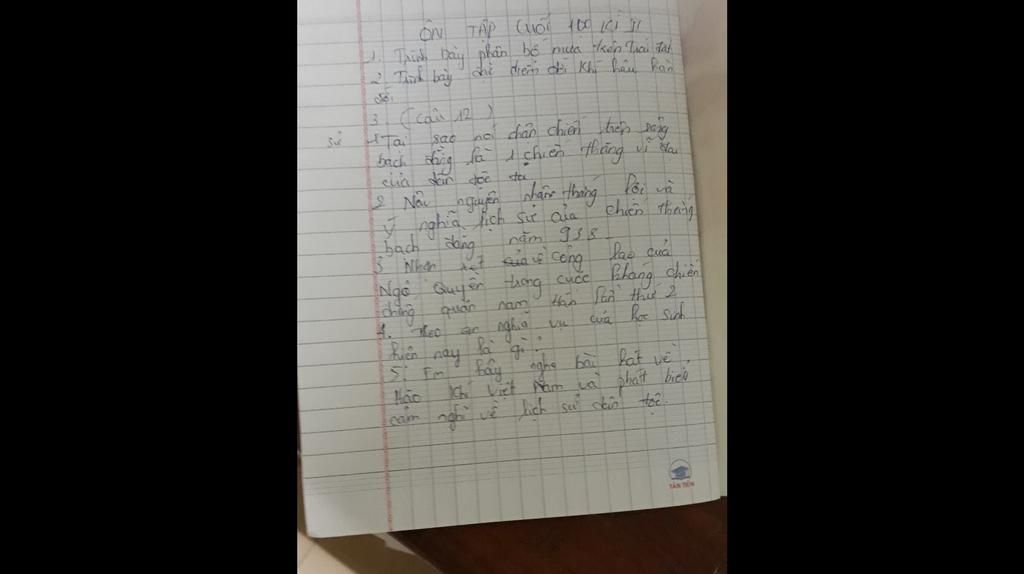 ÔN TẬP CUỐI HỌC KÌ II
1. Trình bày phân bố mưa trên trái đất
2. Trình bày đặc điểm đới khí hậu hàn
đới
3. (Câu 12)
Sử 1 Tại sao nói chiến trên sông
bạch đằng là 1 chiến thắng vĩ đại
của dân tộc ta
2 Nêu nguyên nhân thắng lợi và
ý nghĩa lịch sử của chiến thắng
bạch đằng năm 938.
3 Nhận xét về công lao của
Ngô Quyền trong cuộc kháng chiến
chống quân nam hán lần thứ 2
4. theo em nghĩa vụ của học sinh
hiện nay là gì?
5. Em hãy nghe bài hát về
Hào khí Việt Nam và phát biểu
cảm nghĩ về lịch sử dân tộc.
TÂN TIẾN